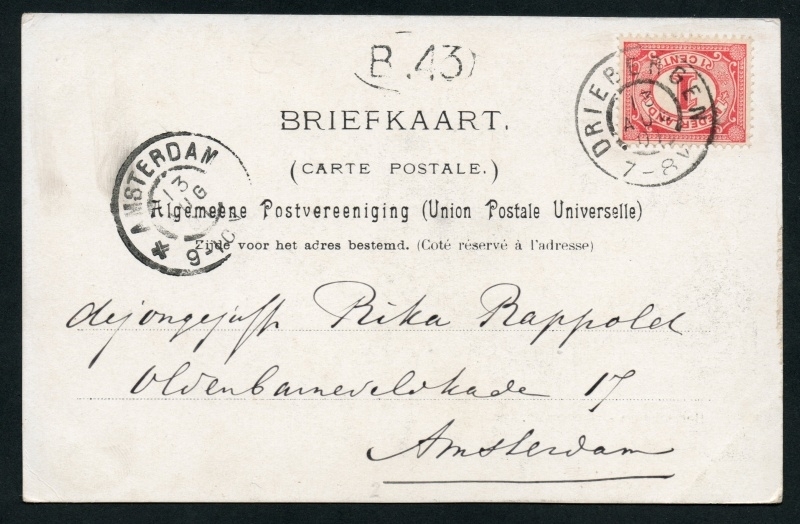 B.43
1 CENT
NEDERLAND
DRIEBERGEN
7-8V
BRIEFKAART.
(CARTE POSTALE.)
AMSTERDAM
13
9-10V
Algemeene Postvereeniging (Union Postale Universelle)
Zijde voor het adres bestemd. (Coté réservé à l'adresse)
dejongejuffr Rika Rappold
Oldenbarneveldkade 17
Amsterdam